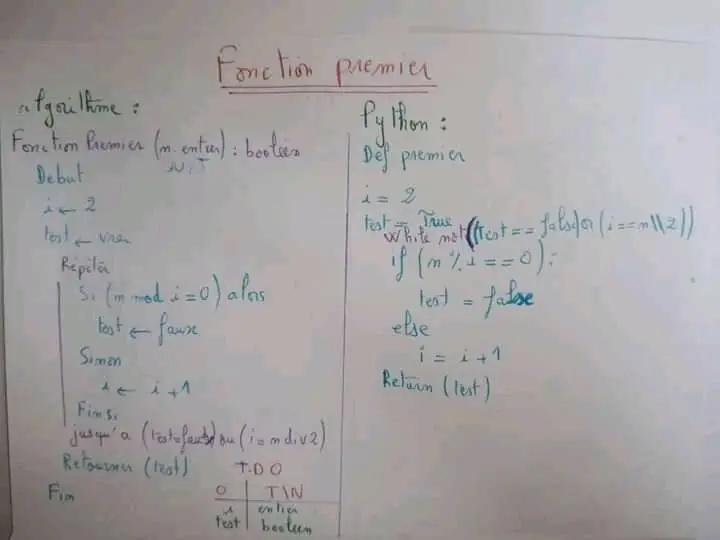 Fonction premier
Algorithme :
Fonction Premier (n: entier) : booléen
N.T
Debut
i ← 2
test ← vrai
Répéter
Si (n mod i = 0) alors
test ← faux
Sinon
i ← i + 1
Finsi
jusqu'a (test=faux) ou (i = n div 2)
Retourner (test)
Fin
T.D.O
O | T\N
i | entier
test | booleen
Python :
Def premier
i = 2
test = True
While not ((test == false) or (i == n\\2))
if (n % i == 0) :
test = false
else
i = i + 1
Return (test)